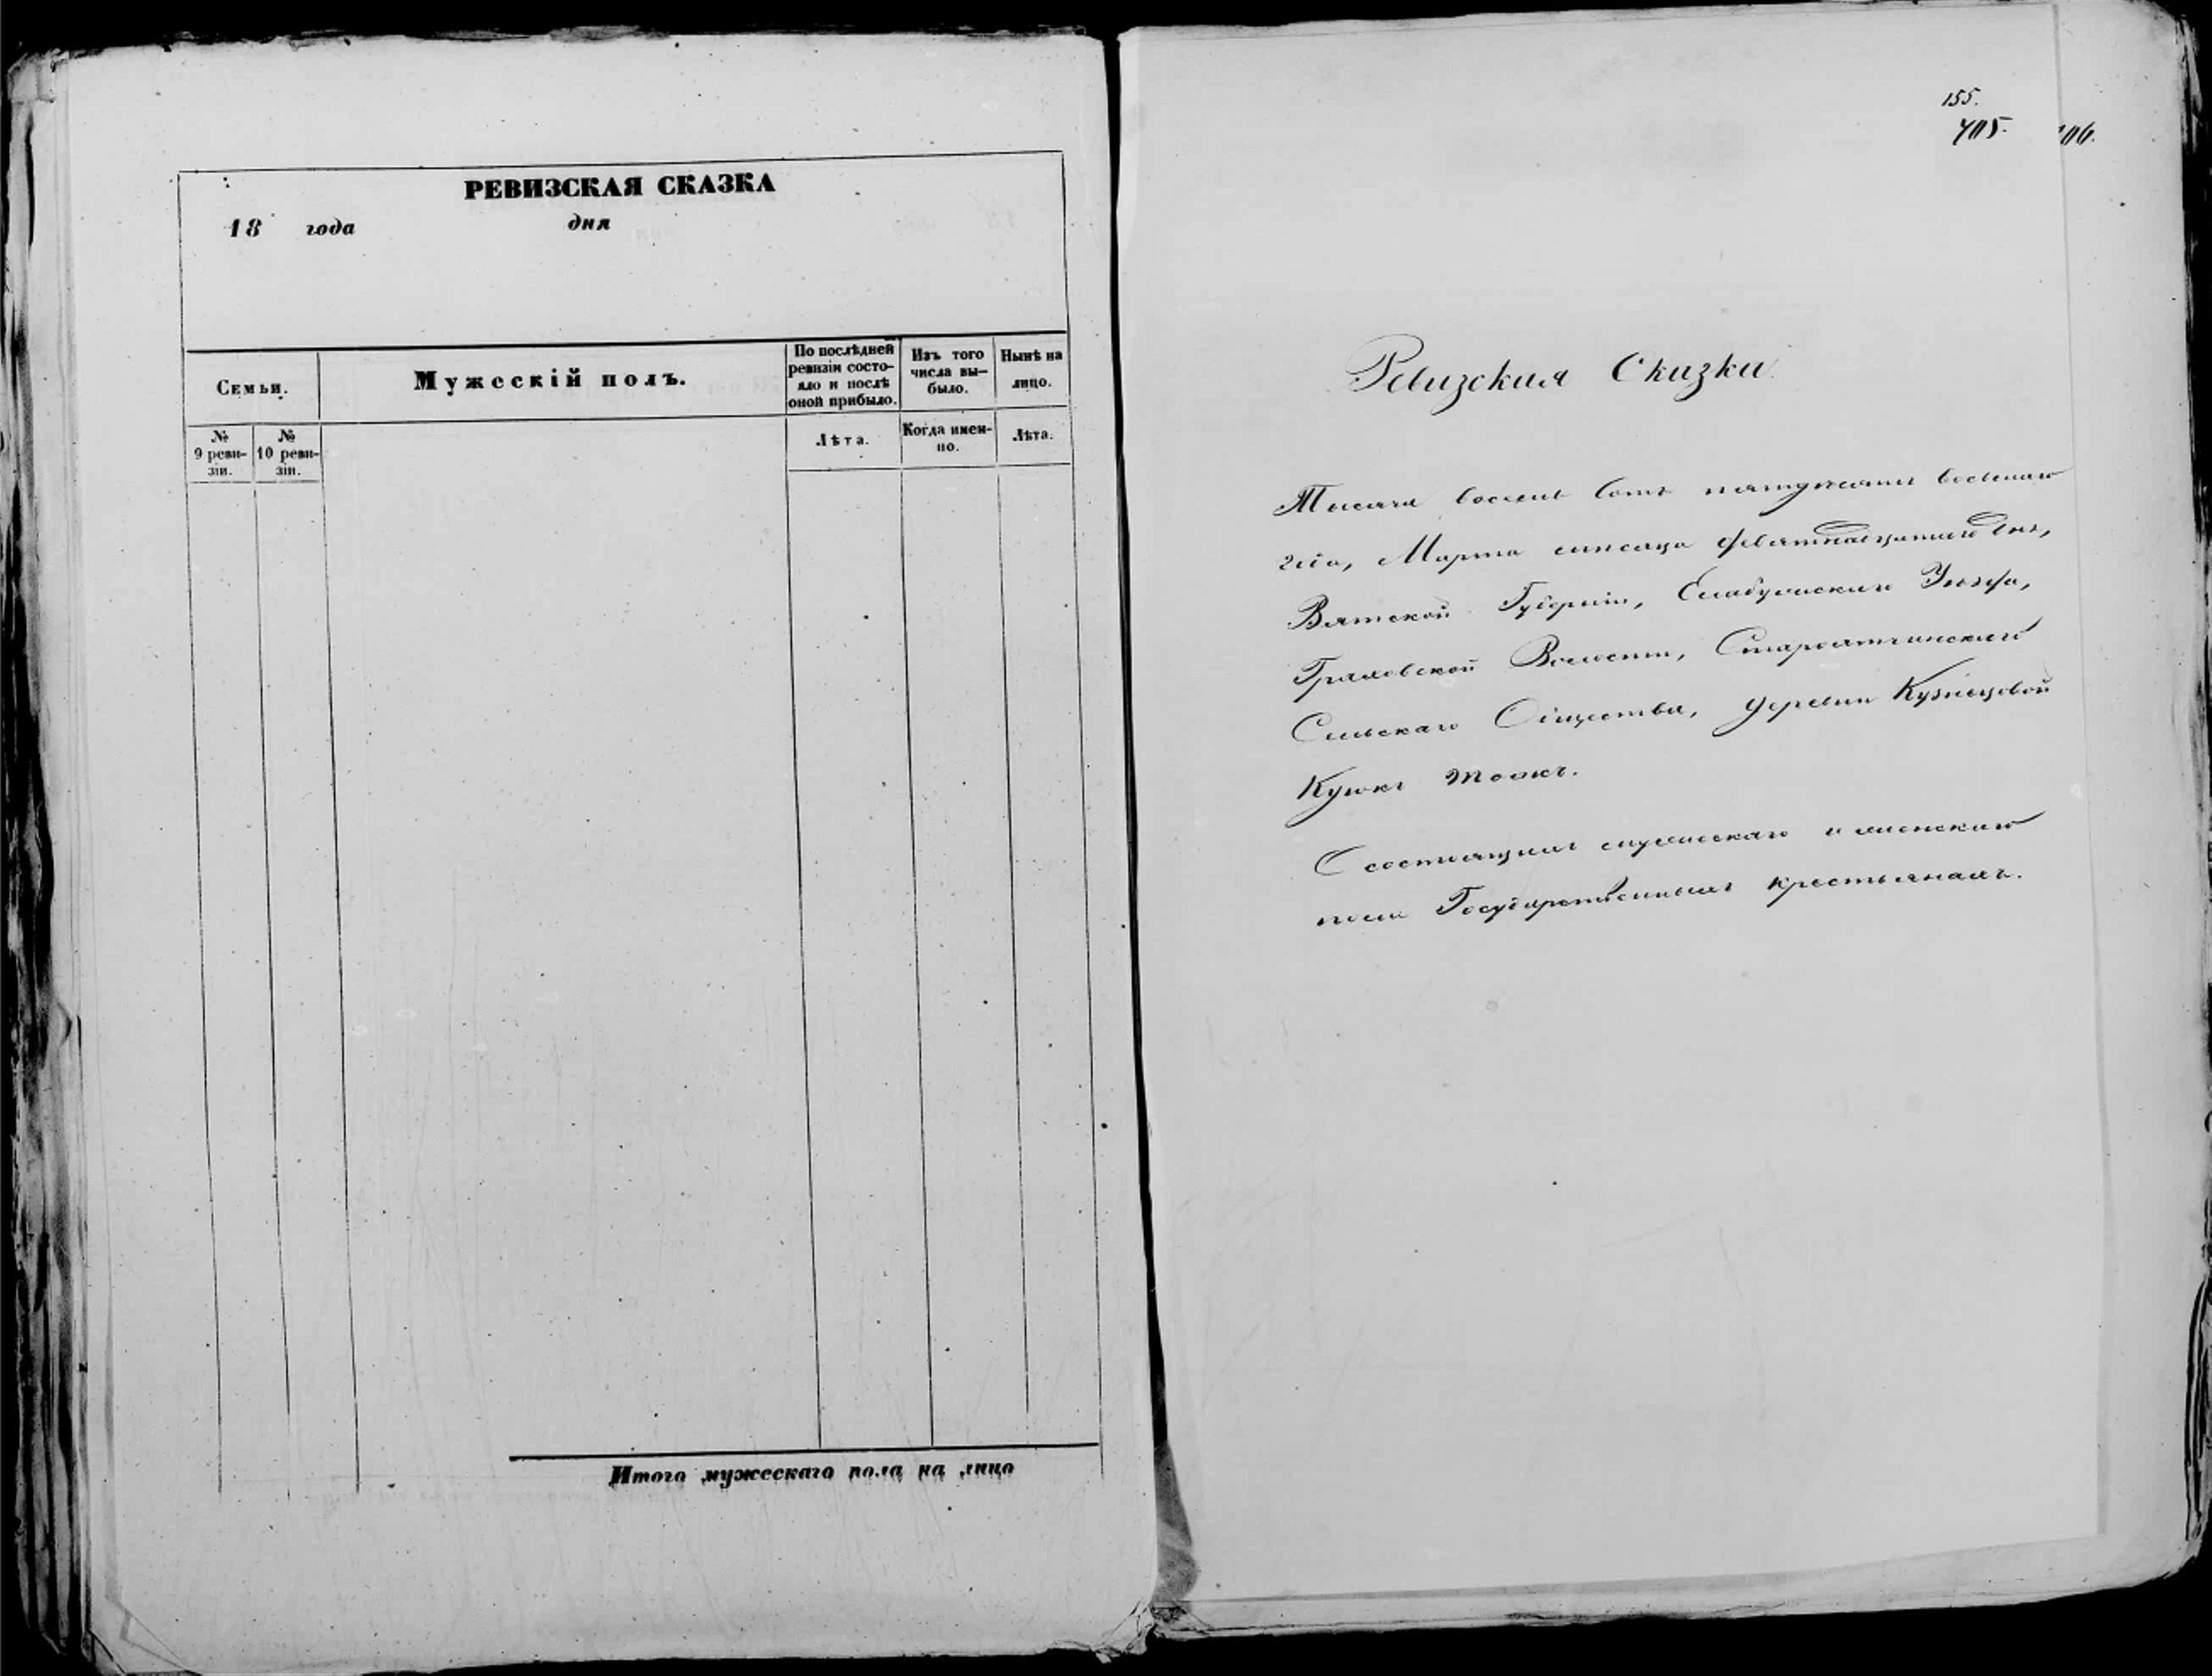 РЕВИЗСКАЯ СКАЗКА
18 года дня
Семьи.
Мужескій полъ.
По послѣдней ревизіи состо-
яло и послѣ
оной прибыло.
Изъ того
числа вы-
было.
Нынѣ на
лицо.
№
9 реви-
зіи.
№
10 реви-
зіи.
Лѣта.
Когда имен-
но.
Лѣта.
Итого мужескаго пола на лицо
155.
705.
Ревизская Сказка
Тысяча восемь сотъ пятьдесятъ восьмаго
года, Марта мѣсяца девятнадцатаго дня,
Вятской Губерніи, Елабужскаго Уѣзда,
Граховской Волости, Староятчинскаго
Сельскаго Общества, деревни Кузнецовой
Кузюкъ тожъ.
О состоящихъ мужескаго и женскаго
пола Государственныхъ крестьянахъ.